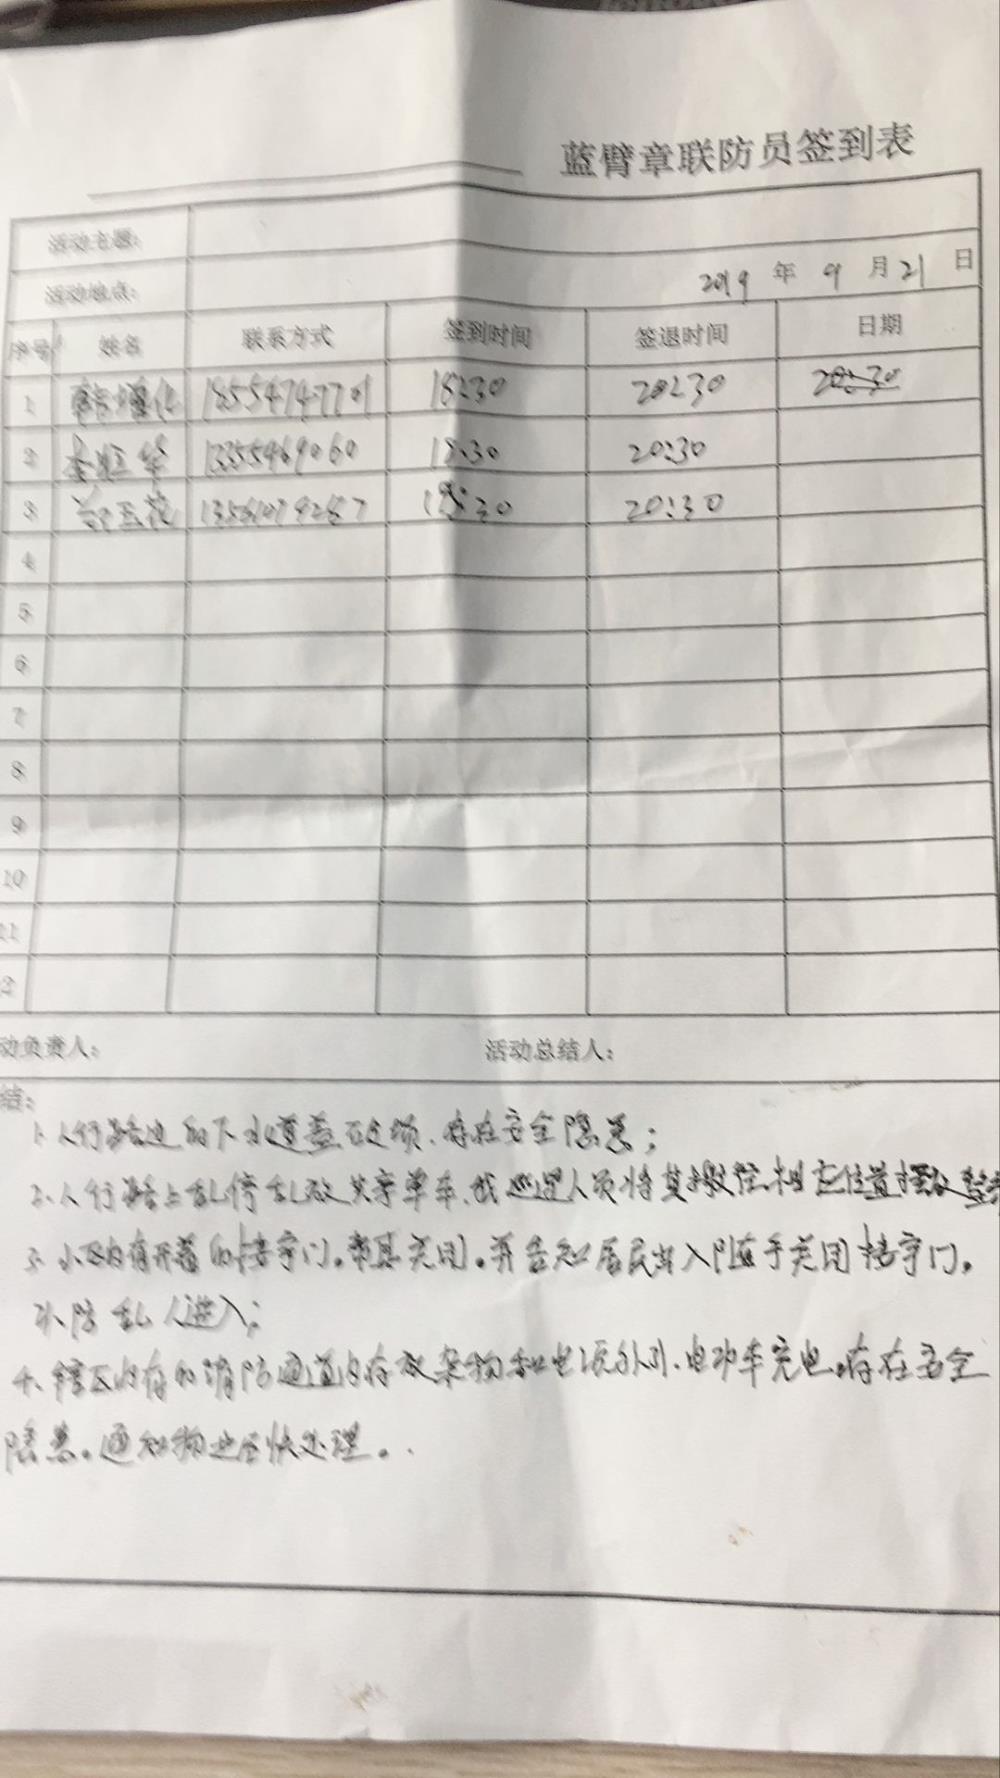 蓝臂章联防员签到表
活动主题:
活动地点: 2019 年 9 月 21 日
序号 姓名 联系方式 签到时间 签退时间 日期
1 18554747701 18:30 20:30 20:30
2 华 13355469060 18:30 20:30
3 玉花 18:30 20:30
4
5
6
7
8
9
10
11
2
动负责人: 活动总结人:
结:
1.人行路边的下水道盖 存在安全隐患;
2.人行路上乱停乱放共享单车,我巡逻人员将其 相应位置摆放整
3.小区内有开着的楼宇门。将其关闭。并告知居民出入随手关闭楼宇门。
以防乱人进入;
4.辖区内存的消防通道内存放杂物和电源外引、电动车充电,存在安全
隐患。通知物业尽快处理。